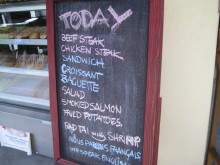 TODAY
BEEF STEAK
CHICKEN STEAK
SANDWICH
CROISSANT
BAGUETTE
SALAD
SMOKED SALMON
FRIED POTATOES
PAD TAI with SHRIMP
NOUS PARLONS FRANÇAIS
WE SPEAK ENGLISH